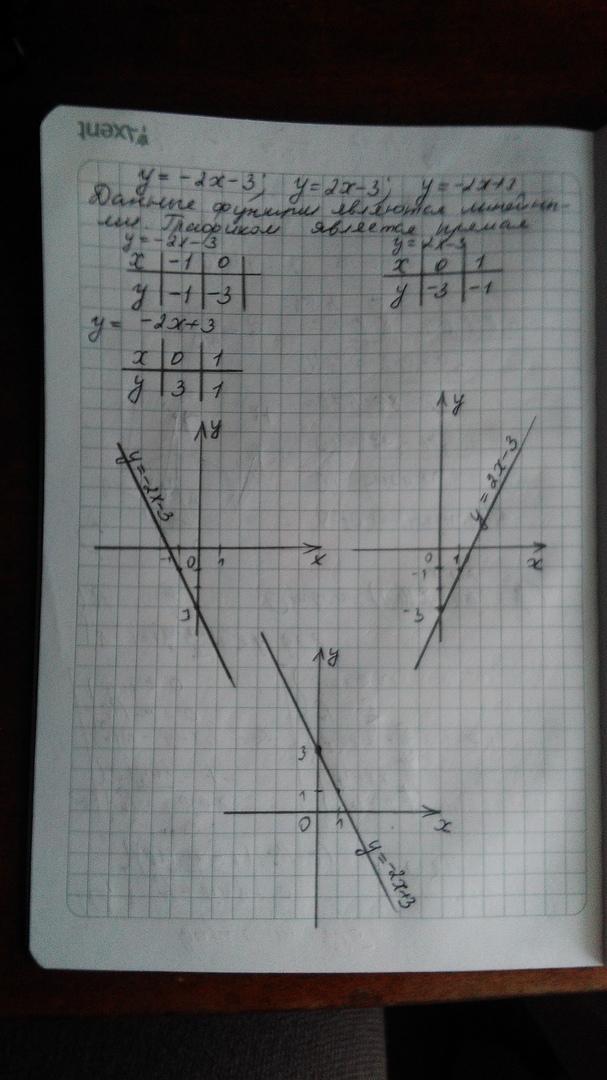 Axent
y = -2x-3; y=2x-3; y=-2x+3
Данные функции являются линейны-
ми. Графиком является прямая
y=-2x-3 y=2x-3
x -1 0 x 0 1
y -1 -3 y -3 -1
y= -2x+3
x 0 1
y 3 1
y y
y=-2x-3 y=2x-3
-1 0 1 x 0 1 x
-1
-3 -3
y
3
1
0 1 x
y=-2x+3